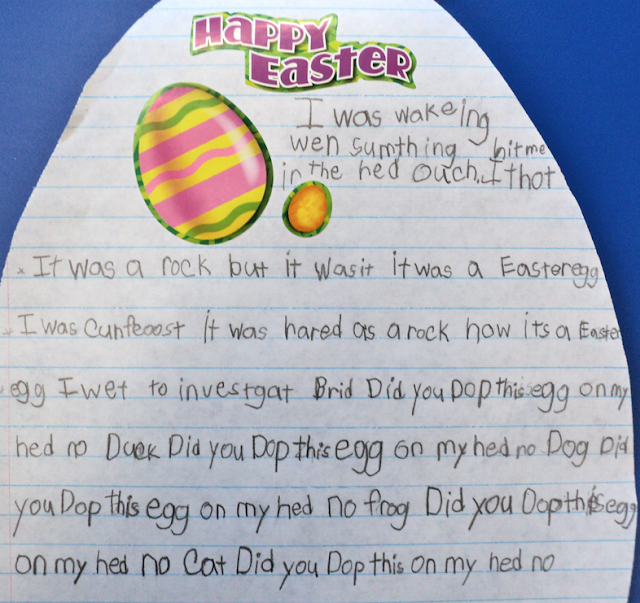 HAPPY
EASTER
I was wakeing
wen sumthing hit me
in the hed ouch. I thot
It was a rock but it wasit it was a Easteregg
I was Cunfeoost it was hared as a rock how its a Easter
egg I wet to investgat Brid Did you Dop this egg on my
hed no Duck Did you Dop this egg on my hed no Dog Did
you Dop this egg on my hed no frog Did you Dop this egg
on my hed no Cat Did you Dop this on my hed no